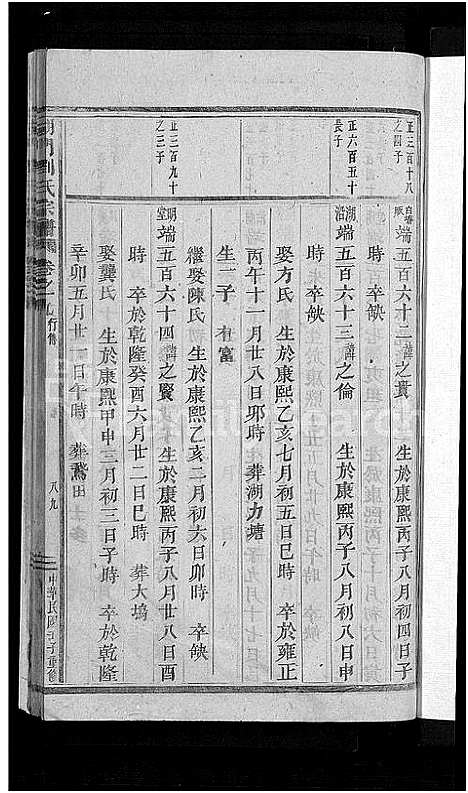 正三百十八
之四子
端五百六十二諱之貴 生於康熙丙子八月初四日子
時 卒缺
正六百五十
長子
湖沿
端五百六十三諱之倫 生於康熙丙子八月初八日申
時 卒缺
娶方氏 生於康熙乙亥七月初五日巳時 卒於雍正
丙午十一月廿八日卯時 葬湖力塘
生一子 有富
繼娶陳氏 生於康熙乙亥二月初六日卯時 卒缺
正三百九十
之三子
明堂
端五百六十四諱之賢 生於康熙丙子八月廿八日酉
時 卒於乾隆癸酉六月廿二日巳時 葬大塢
娶龔氏 生於康熙甲申三月初三日子時 卒於乾隆
辛卯五月廿一日午時 葬鵞田
門劉氏宗譜 卷之 行傳
八九
中華民國 子重修